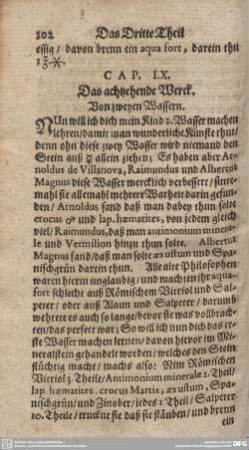 102 Das Dritte Theil
essig / davon brenn ein aqua fort, darein thu
1 ℥ ✶.
CAP. LX.
Das achtzehende Werck.
Von zweyen Wassern.
NUn will ich dich mein Kind 2. Wasser machen
lehren / damit man wunderliche Künste thut /
denn ohn diese zwey Wasser wird niemand den
Stein auß ☿ allein ziehen; Es haben aber Ar-
noldus de Villanova, Raimundus und Albertus
Magnus diese Wasser mercklich verbessert / sinte-
mahl sie allemahl mehrere Warheit darin gefun-
den / Arnoldus sand daß man dabey thun solte
crocus ♂ und lap. hæmatites, von jedem gleich
viel / Raimundus, daß man antimonium minera-
le und Vermilion hinzu thun solte. Albertus
Magnus fand / daß man solte æs ustum und Spa-
nischgrün darein thun. Alle alte Philosophen
waren hierin unglaubig / und machten ihr aqua-
fort schlecht auß Römischen Vitriol und Sal-
peter / oder auß Alaun und Salpeter / darumb
wehrete es auch so lange / bevor sie was vollbrach-
ten / das perfect war; So will ich nun dich das er-
ste Wasser machen lernen / davon hievor im Mi-
neralstein gehandelt worden / welches den Stein
flüchtig mache / machs also: Nim Römischen
Vitriol 3. Theile / Antimonium minerale 2. Theil /
lap. hæmatites, crocus Martis, æs ustum, Spa-
nischgrün / und Zinober / jedes 1. Theil / Salpeter
10. Theile / truckne sie daß sie stäuben / und brenn
ein